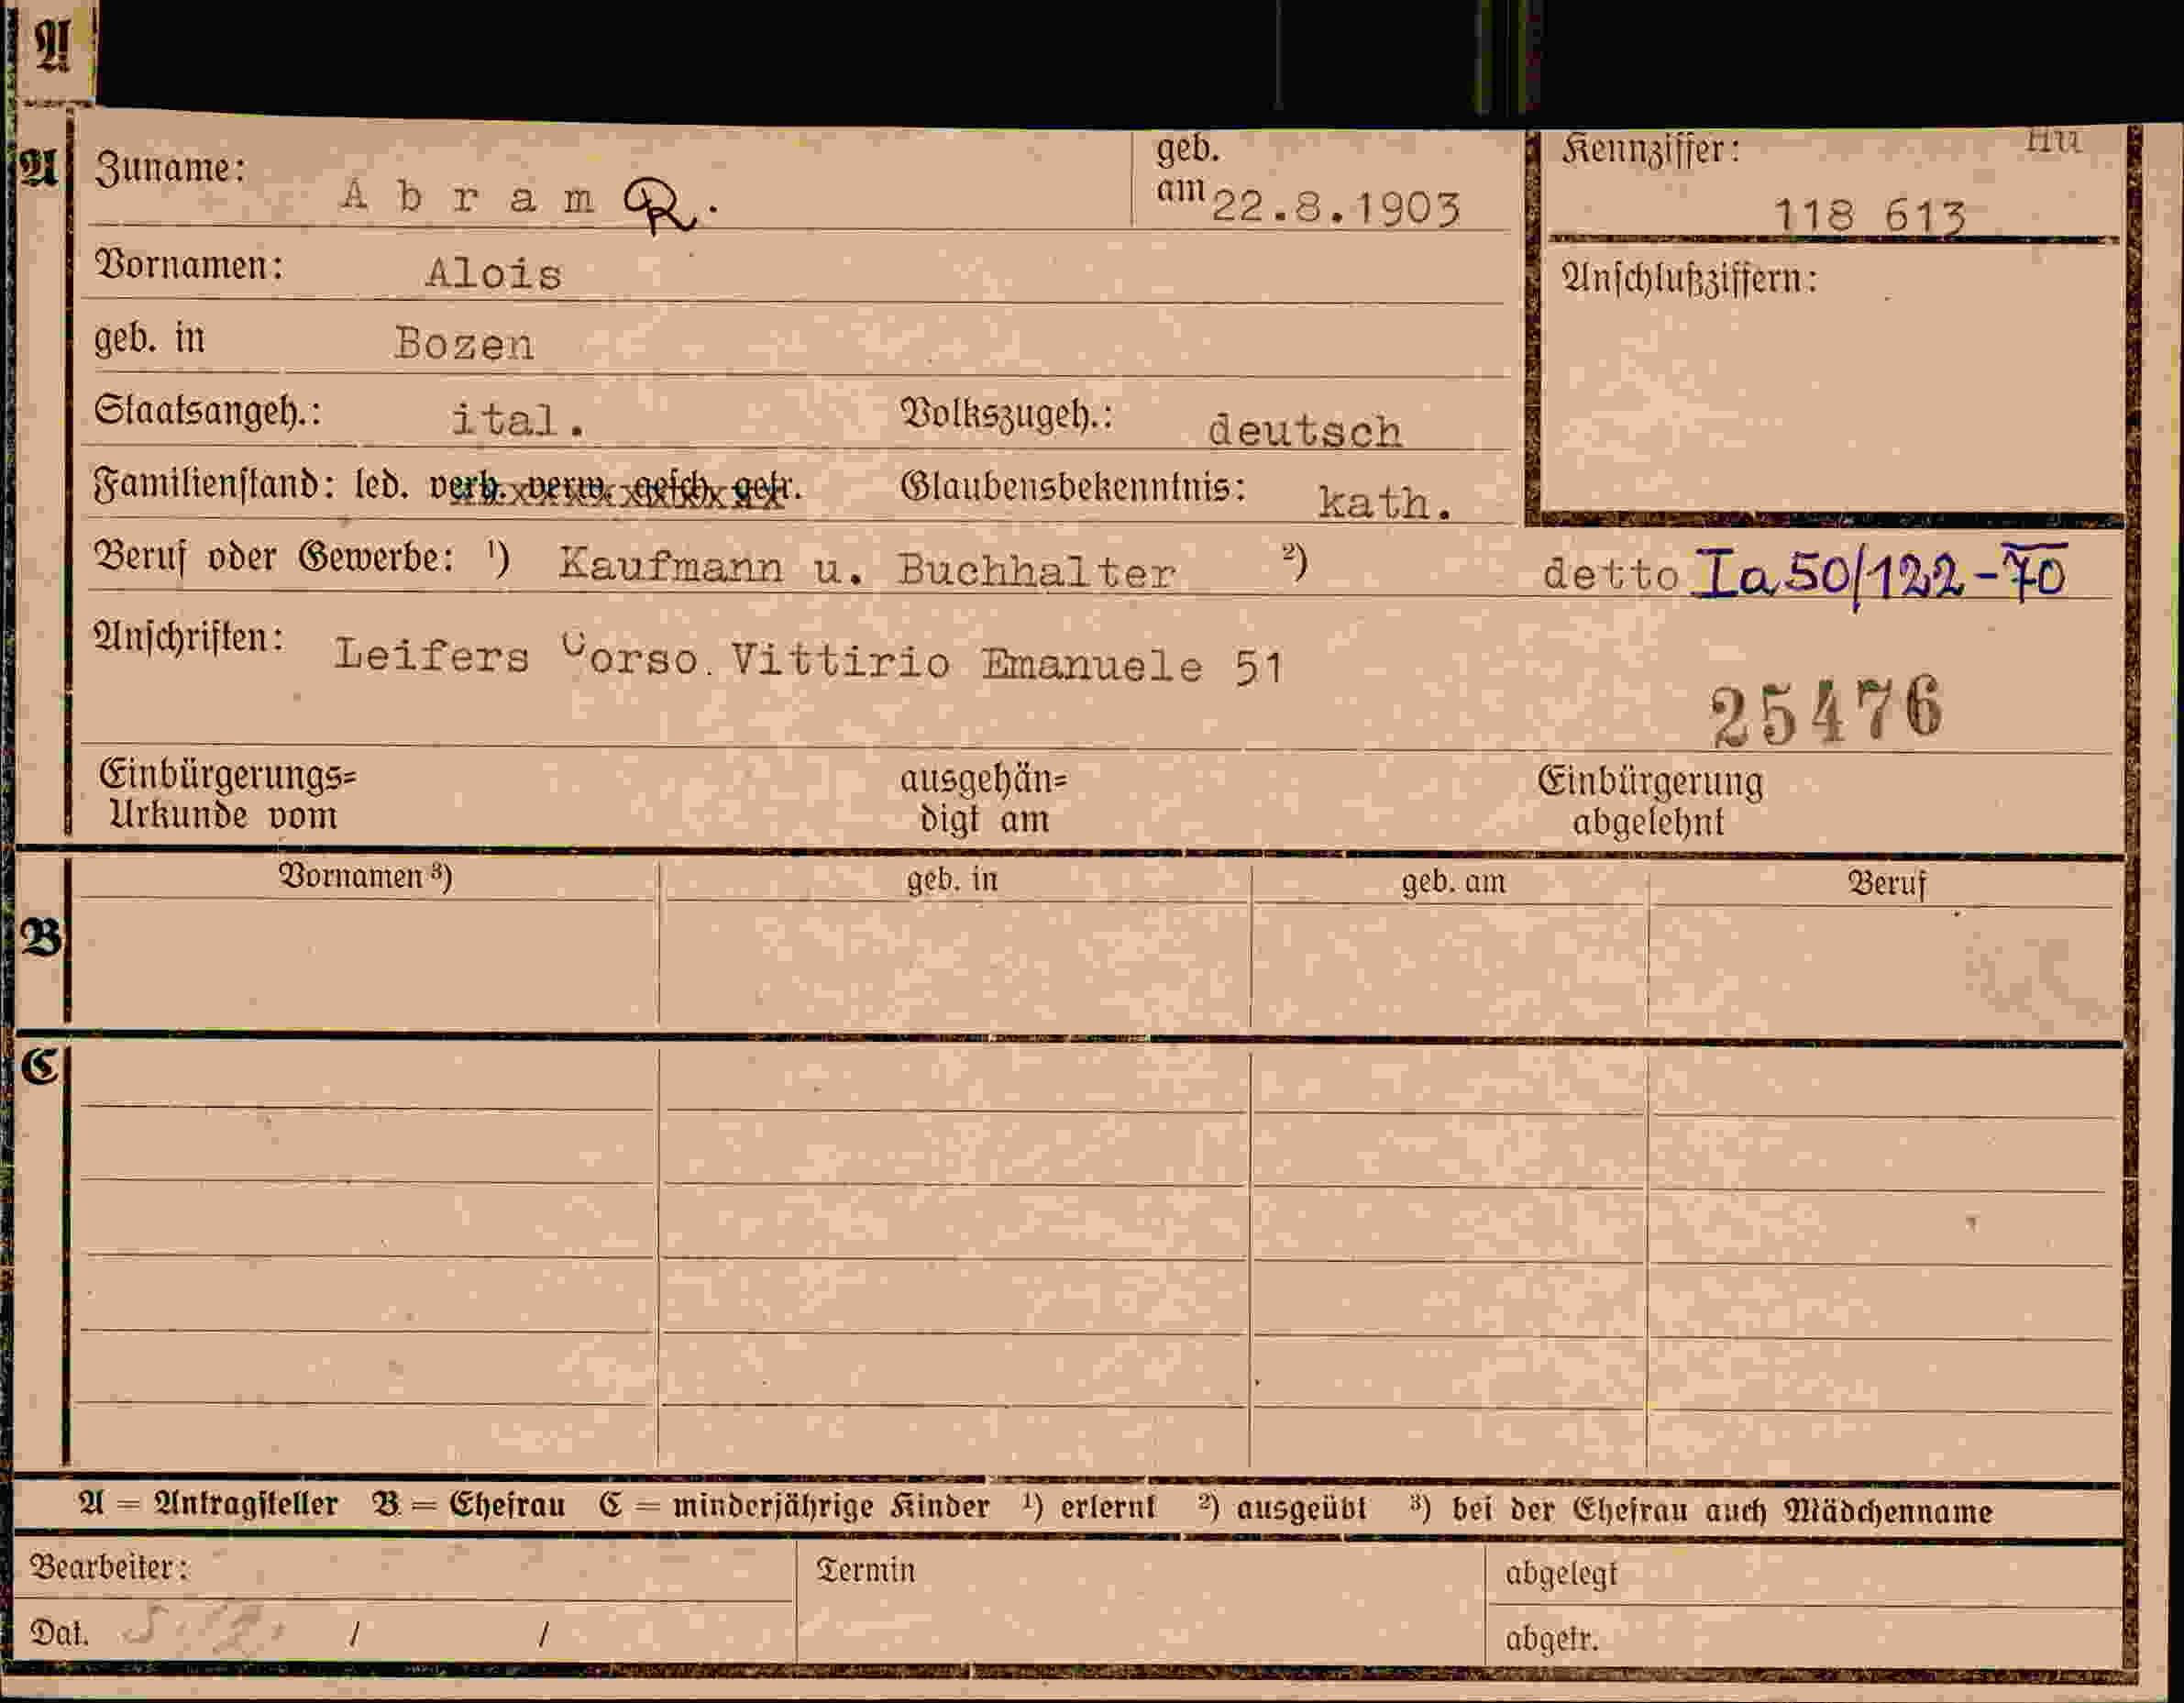 A
A
Zuname: Abram R.
geb. am 22.8.1903
Kennziffer: Hu
118 613
Vornamen: Alois
Anschlußziffern:
geb. in Bozen
Staatsangeh.: ital. Volkszugeh.: deutsch
Familienstand: led. verh. verw. gesch. getr. Glaubensbekenntnis: kath.
Beruf oder Gewerbe: 1) Kaufmann u. Buchhalter 2) detto Ia 50/122-70
Anschriften: Leifers Corso. Vittirio Emanuele 51
25476
Einbürgerungs= ausgehän= Einbürgerung
Urkunde vom digt am abgelehnt
Vornamen 3) geb. in geb. am Beruf
B
C
A = Antragsteller B = Ehefrau C = minderjährige Kinder 1) erlernt 2) ausgeübt 3) bei der Ehefrau auch Mädchenname
Bearbeiter: Termin abgelegt
Dat. / / abgetr.